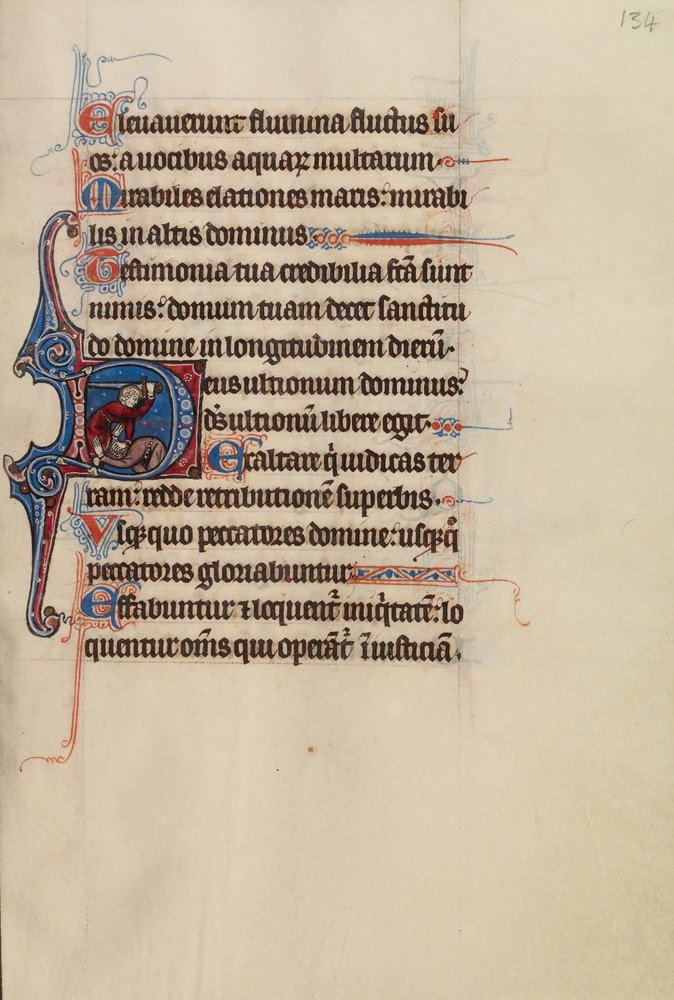 134
Eleuauerunt flumina fluctus su
os: a uocibus aquaꝝ multarum.
Mirabiles elationes maris: mirabi
lis in altis dominus.
Testimonia tua credibilia fc̄a sunt
nimis: domum tuam decet sanctitu
do domine in longitudinem dierū.
Deus ultionum dominus:
ds̄ ultionū libere egit.
Exaltare qͥ iudicas ter
ram: redde retributionē superbis.
Vsqꝫ quo peccatores domine: usqꝫ qͦ
peccatores gloriabuntur
Effabuntur ⁊ loquentᷣ iniqͥtatē: lo
quentur om̄s qui operāt᷑ īiusticiā.